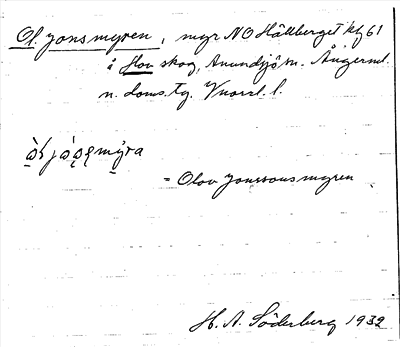 Ol. jonsmyren, myr NO Hällberget kfg 61
i Hou skog, Anundsjö sn. Ångerml.
n. doms. tg. Vnorrl. l.
= Olov Jonssonsmyren
H. A. Söderberg 1932